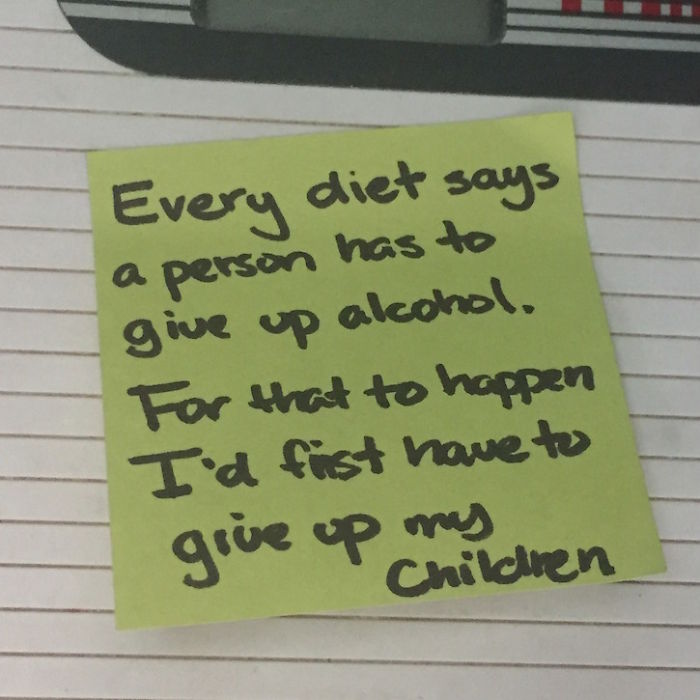 Every diet says
a person has to
give up alcohol.
For that to happen
I'd first have to
give up my
Children